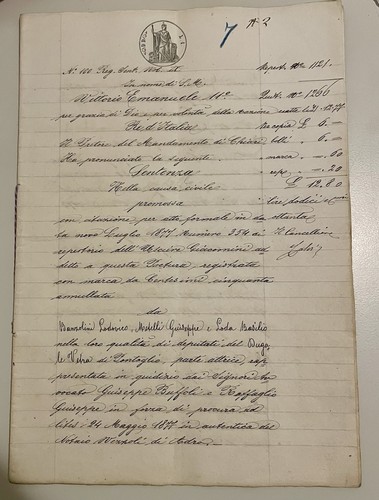 7 N° 2
N° 100 Reg. Sent. 1877
In nome di S. M. Repert. N° 1121.
Vittorio Emanuele II° Quit. N° 1266
per grazia di Dio e per volontà della nazione
Re d'Italia copia £ 6. —
Il Pretore del Mandamento di Chiari bolli " 6. —
Ha pronunciato la seguente " marca " —. 60
Sentenza " rep. " —. 20
Nella causa civile £ 12.80
promossa lire dodici
con citazione per atto formale in data ottanta
la nove Luglio 1877 Numero 234 di Il Cancelliere
repertorio dell'Usciere Giacomini ad
detto a questa Pretura, registrata
con marca da Centesimi cinquanta
annullata
da
Lodovico, Motelli Giuseppe e Loda Basilio
nella loro qualità di deputati del Dugale
Vetra di Pontoglio, parte attrice, rap
presentata in giudizio dai Signori Av
vocato Giuseppe Buffoli e
Giuseppe in forza di procura ad
lites 24 Maggio 1877 in autentica del
Notaio di